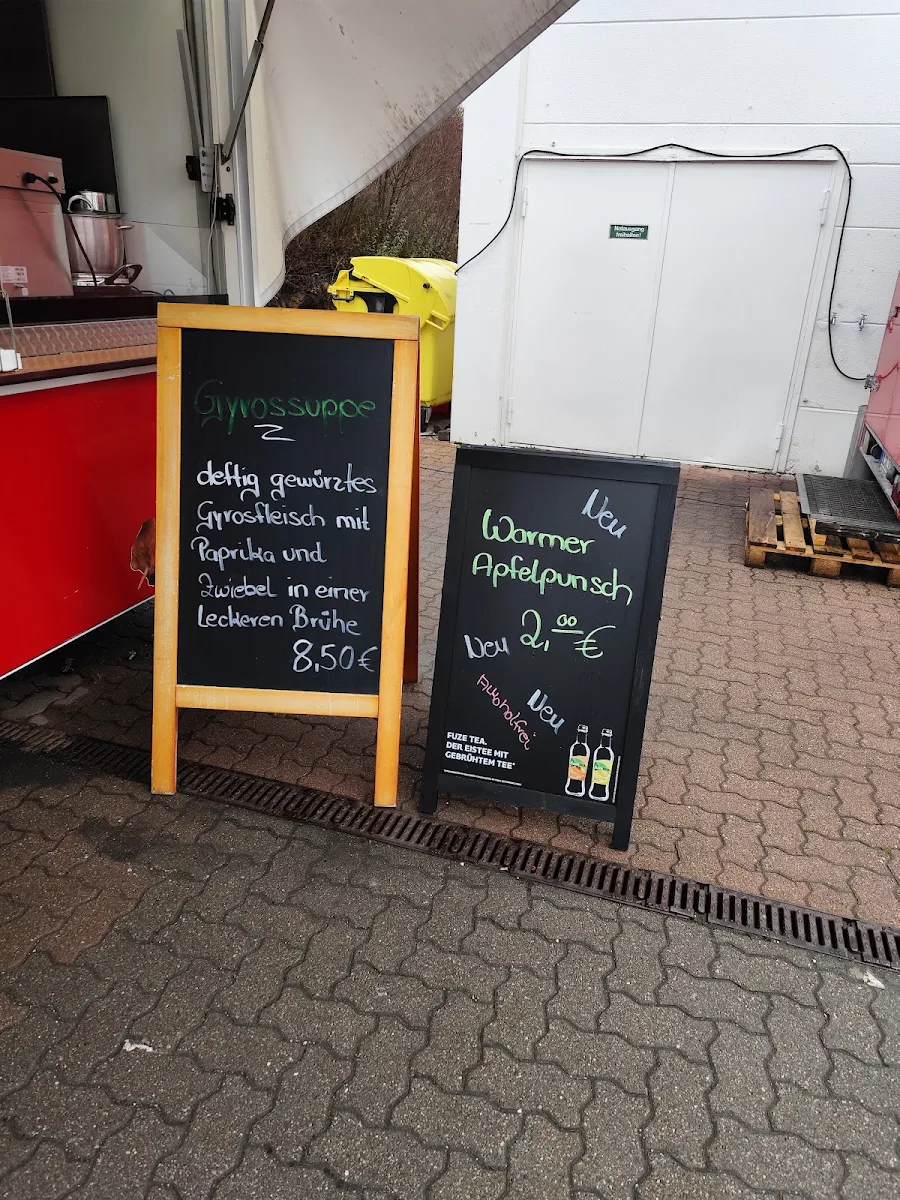 Gyrossuppe
deftig gewürztes
Gyrosfleisch mit
Paprika und
Zwiebel in einer
Leckeren Brühe
8,50€
Neu
Warmer
Apfelpunsch
2,00€
Neu
Neu
Alkoholfrei
FUZE TEA.
DER EISTEE MIT
GEBRÜHTEM TEE*
Notausgang
freihalten!